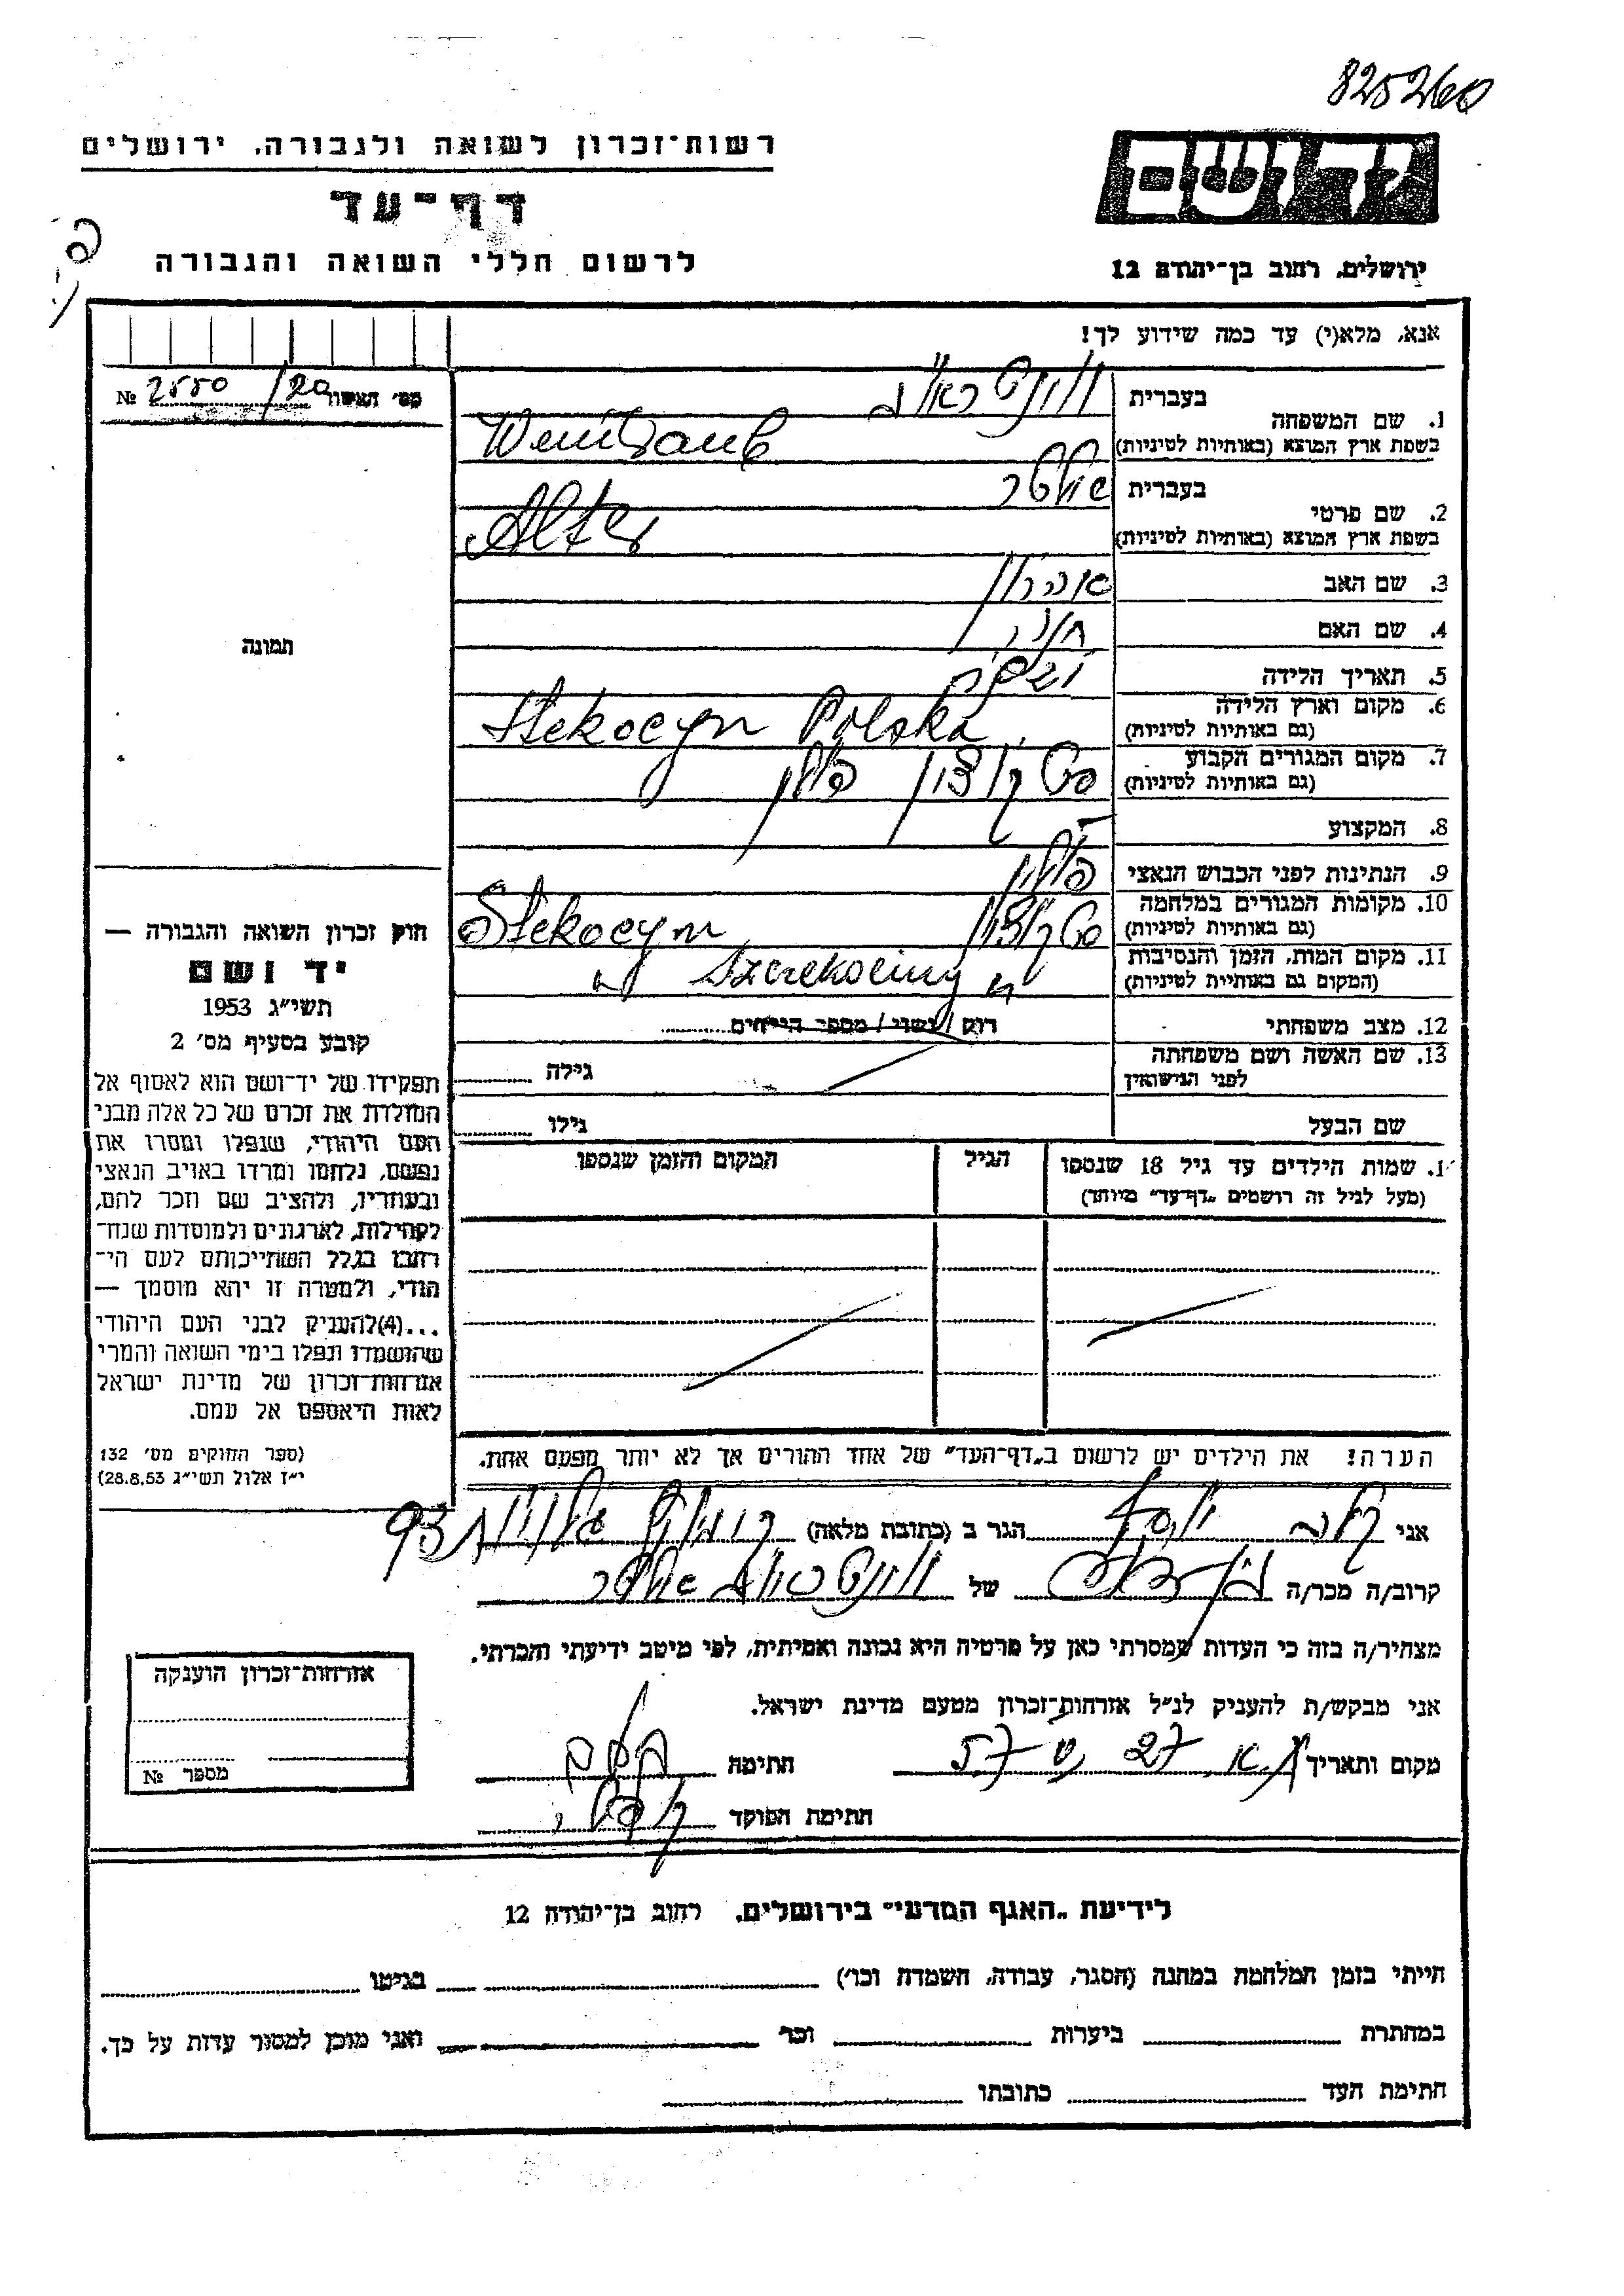 825260
רשות־זכרון לשואה ולגבורה, ירושלים
דף־עד
לרשום חללי השואה והגבורה
יד ושם
ירושלים, רחוב בן־יהודה 12
אנא, מלא(י) עד כמה שידוע לך!
מס׳ האשור 2550/20 №
1. שם המשפחה
בעברית ווינטראוב
בשפת ארץ המוצא (באותיות לטיניות) Weintraub
2. שם פרטי
בעברית אלטר
בשפת ארץ המוצא (באותיות לטיניות) Alter
3. שם האב אהרון
4. שם האם חנה
5. תאריך הלידה
6. מקום וארץ הלידה
(גם באותיות לטיניות) Stekocyn Polska
7. מקום המגורים הקבוע
(גם באותיות לטיניות) סטקוצין פולין
8. המקצוע
9. הנתינות לפני הכבוש הנאצי פולין
10. מקומות המגורים במלחמה
(גם באותיות לטיניות) סטקוצין Stekocyn
11. מקום המות, הזמן והנסיבות
(המקום גם באותיות לטיניות) " Szczekociny "
12. מצב משפחתי רוק / נשוי / מספר הילדים
13. שם האשה ושם משפחתה
לפני הנישואין גילה
שם הבעל גילו
1. שמות הילדים עד גיל 18 שנספו
(מעל לגיל זה רושמים „דף־עד״ מיוחד)
הגיל
המקום והזמן שנספו
הערה! את הילדים יש לרשום ב„דף־העד״ של אחד ההורים אך לא יותר מפעם אחת.
תמונה
חוק זכרון השואה והגבורה —
יד ושם
תשי״ג 1953
קובע בסעיף מס׳ 2
תפקידו של יד־ושם הוא לאסוף אל
המולדת את זכרם של כל אלה מבני
העם היהודי, שנפלו ומסרו את
נפשם, נלחמו ומרדו באויב הנאצי
ובעוזריו, ולהציב שם וזכר להם,
לקהילות, לארגונים ולמוסדות שנח־
רבו בגלל השתייכותם לעם הי־
הודי, ולמטרה זו יהא מוסמך —
...(4)להעניק לבני העם היהודי
שהושמדו ונפלו בימי השואה והמרי
אזרחות־זכרון של מדינת ישראל
לאות היאספם אל עמם.
(ספר החוקים מס׳ 132
י״ז אלול תשי״ג 28.8.53)
אני יוסף הגר ב (כתובת מלאה) 93
קרוב/ה מכר/ה של ווינטראוב אלטר
מצהיר/ה בזה כי העדות שמסרתי כאן על פרטיה היא נכונה ואמיתית, לפי מיטב ידיעתי והכרתי.
אני מבקש/ת להעניק לנ״ל אזרחות־זכרון מטעם מדינת ישראל.
מקום ותאריך ת.א. 27 57 חתימה
חתימת הפוקד
אזרחות־זכרון הוענקה
מספר №
לידיעת „האגף המדעי״ בירושלים, רחוב בן־יהודה 12
הייתי בזמן המלחמה במחנה (הסגר, עבודה, השמדה וכו׳) בגיטו
במחתרת ביערות וכו׳ ואני מוכן למסור עדות על כך.
חתימת העד כתובתו